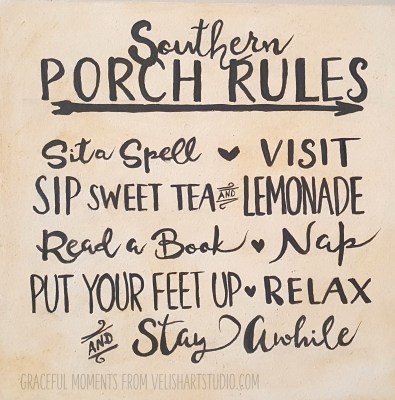 Southern
PORCH RULES
Sit a Spell ♥ VISIT
SIP SWEET TEA AND LEMONADE
Read a Book ♥ Nap
PUT YOUR FEET UP ♥ RELAX
AND Stay Awhile
GRACEFUL MOMENTS FROM VELISHARTSTUDIO.COM